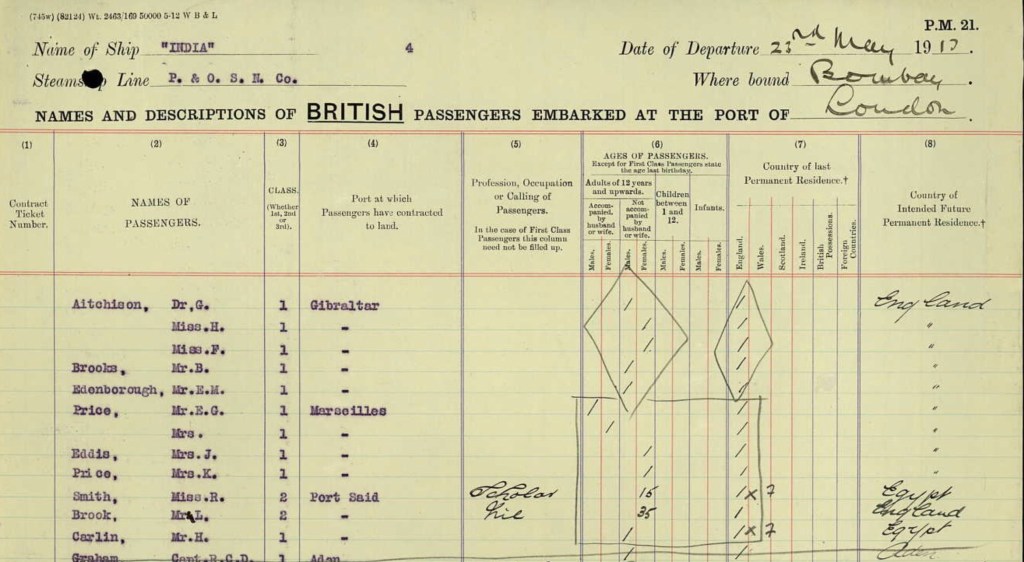 (745w) (82124) Wt. 2463/169 50000 5-12 W B & L
P.M. 21.
Name of Ship "INDIA" 4 Date of Departure 23rd May 1913.
Steamship Line P. & O. S. N. Co. Where bound Bombay
NAMES AND DESCRIPTIONS OF BRITISH PASSENGERS EMBARKED AT THE PORT OF London.
(1) (2) (3) (4) (5) (6) (7) (8)
Contract Ticket Number.
NAMES OF PASSENGERS.
CLASS. (Whether 1st, 2nd or 3rd).
Port at which Passengers have contracted to land.
Profession, Occupation or Calling of Passengers.
In the case of First Class Passengers this column need not be filled up.
AGES OF PASSENGERS.
Except for First Class Passengers state the age last birthday.
Adults of 12 years and upwards.
Accompanied by husband or wife.
Not accompanied by husband or wife.
Children between 1 and 12.
Infants.
Males. Females. Males. Females. Males. Females. Males. Females.
Country of last Permanent Residence.†
England. Wales. Scotland. Ireland. British Possessions. Foreign Countries.
Country of Intended Future Permanent Residence.†
Aitchison, Dr,G. 1 Gibraltar / / England
Miss.H. 1 - / / "
Miss.F. 1 - / / "
Brooks, Mr.B. 1 - / / "
Edenborough, Mr.E.M. 1 - / / "
Price, Mr.E.G. 1 Marseilles / / "
Mrs. 1 - / / "
Eddis, Mrs.J. 1 - / / "
Price, Mrs.K. 1 - / / "
Smith, Miss.R. 2 Port Said Scholar 15 1 x 7 Egypt
Brook, L. 2 - Nil 35 1 England
Carlin, Mr.H. 1 - / 1 x 7 Egypt
Graham Capt.R.C.D. 1 Aden / / Aden